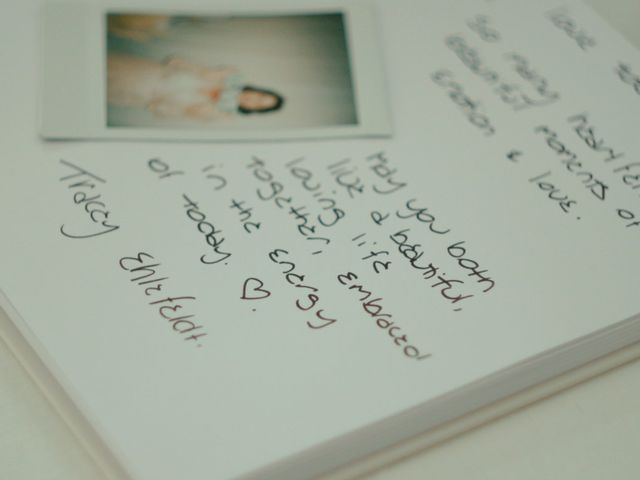 love
so many
beautiful moments of
emotion & love.
May you both
live a beautiful,
loving life
together, embraced
in the energy
of today. ♡.
Tracey Ehlefeldt.